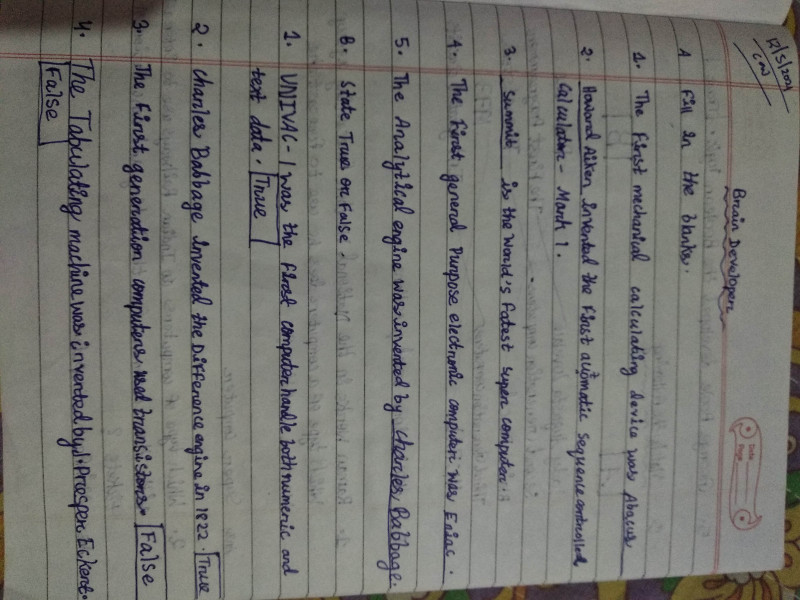 12/5/2021
CW
Brain Developer
Date
Page
A Fill in the blanks.
1. The First mechanical calculating device was Abacus
2. Howard Aiken invented the First automatic Sequence controlled
Calculator - Mark 1.
3. Summit is the world's Fatest super computer.
4. The First general Purpose electronic computer was Eniac.
5. The Analytical engine was invented by Charles Babbage.
B. State True or False.
1. UNIVAC-1 was the first computer handle both numeric and
text data. True
2. Charles Babbage invented the Difference engine in 1822. True
3. The First generation computers used transistors. False
4. The Tabulating machine was invented by J. Prosper Eckert.
False